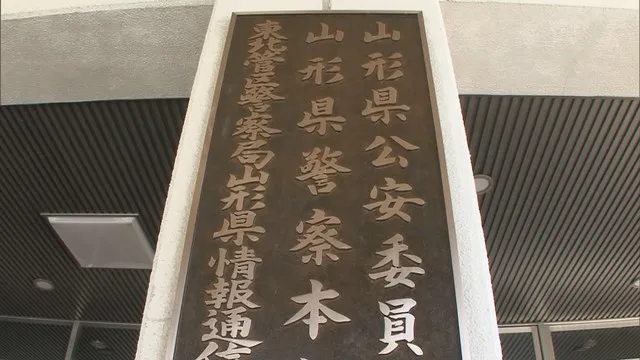 山形県公安委員
山形県警察本
東北管区警察局山形県情報通信